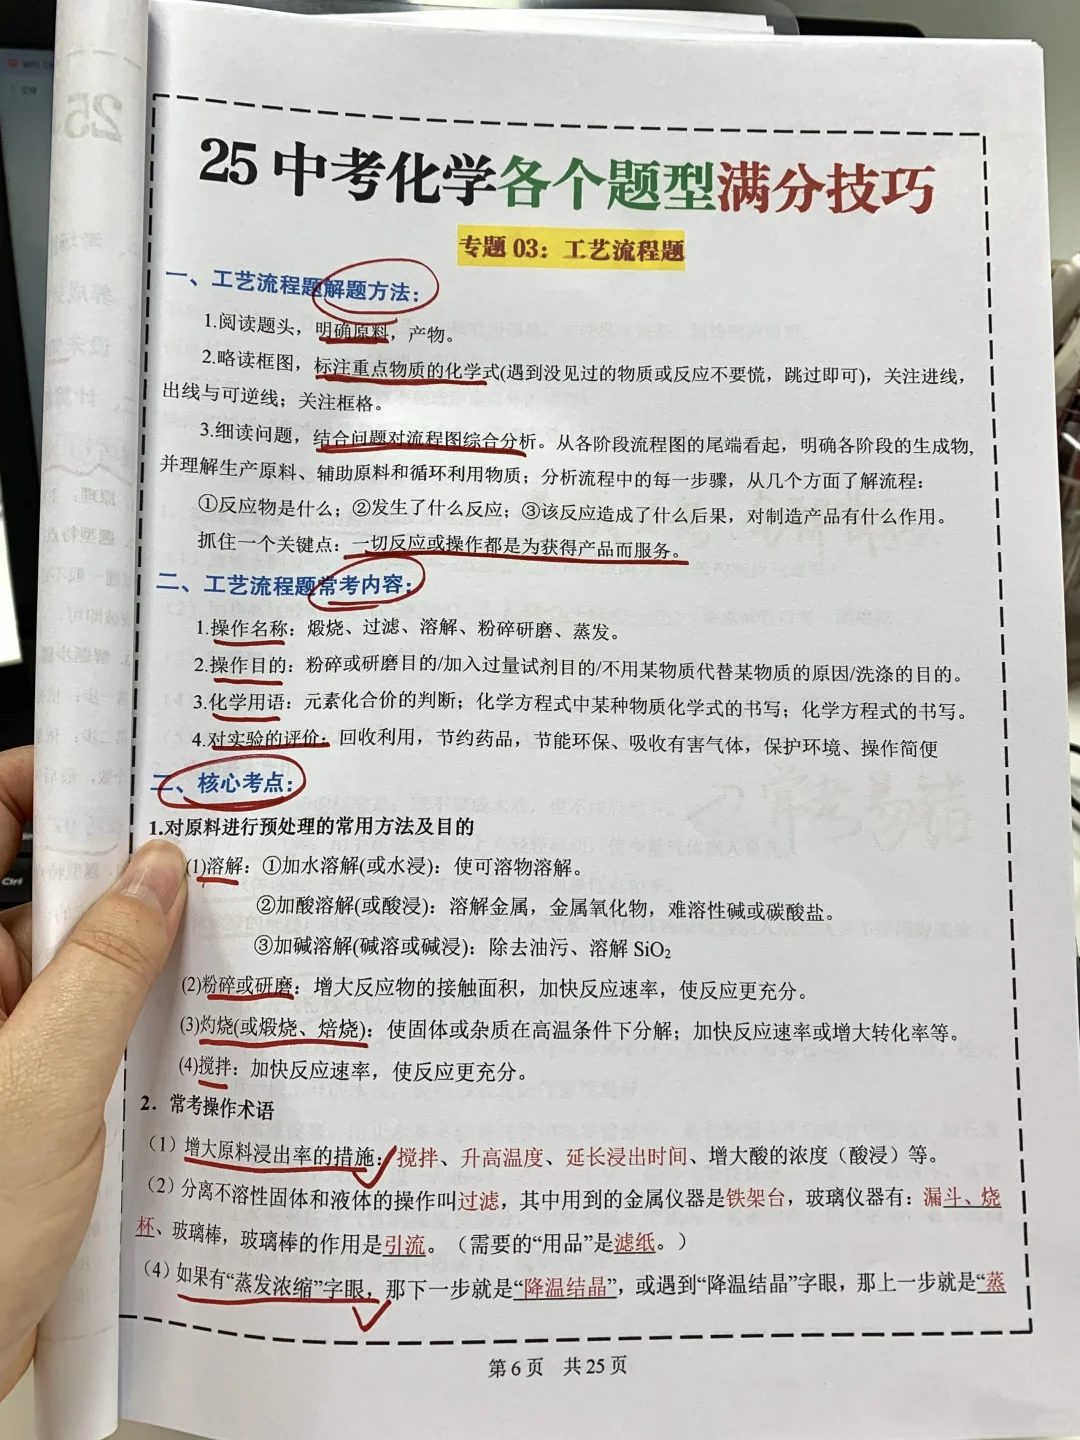 25中考化学各个题型满分技巧
专题 03：工艺流程题
一、工艺流程题解题方法：
1.阅读题头，明确原料，产物。
2.略读框图，标注重点物质的化学式(遇到没见过的物质或反应不要慌，跳过即可)，关注进线，
出线与可逆线；关注框格。
3.细读问题，结合问题对流程图综合分析。从各阶段流程图的尾端看起，明确各阶段的生成物,
并理解生产原料、辅助原料和循环利用物质；分析流程中的每一步骤，从几个方面了解流程：
①反应物是什么；②发生了什么反应；③该反应造成了什么后果，对制造产品有什么作用。
抓住一个关键点：一切反应或操作都是为获得产品而服务。
二、工艺流程题常考内容：
1.操作名称：煅烧、过滤、溶解、粉碎研磨、蒸发。
2.操作目的：粉碎或研磨目的/加入过量试剂目的/不用某物质代替某物质的原因/洗涤的目的。
3.化学用语：元素化合价的判断；化学方程式中某种物质化学式的书写；化学方程式的书写。
4.对实验的评价：回收利用，节约药品，节能环保、吸收有害气体，保护环境、操作简便
二、核心考点：
1.对原料进行预处理的常用方法及目的
(1)溶解：①加水溶解(或水浸)：使可溶物溶解。
②加酸溶解(或酸浸)：溶解金属，金属氧化物，难溶性碱或碳酸盐。
③加碱溶解(碱溶或碱浸)：除去油污、溶解 SiO₂
(2)粉碎或研磨：增大反应物的接触面积，加快反应速率，使反应更充分。
(3)灼烧(或煅烧、焙烧)：使固体或杂质在高温条件下分解；加快反应速率或增大转化率等。
(4)搅拌：加快反应速率，使反应更充分。
2．常考操作术语
（1）增大原料浸出率的措施：搅拌、升高温度、延长浸出时间、增大酸的浓度（酸浸）等。
（2）分离不溶性固体和液体的操作叫过滤，其中用到的金属仪器是铁架台，玻璃仪器有：漏斗、烧
杯、玻璃棒，玻璃棒的作用是引流。（需要的“用品”是滤纸。）
（4）如果有“蒸发浓缩”字眼，那下一步就是“降温结晶”，或遇到“降温结晶”字眼，那上一步就是“蒸
第 6 页 共 25 页
Ctrl